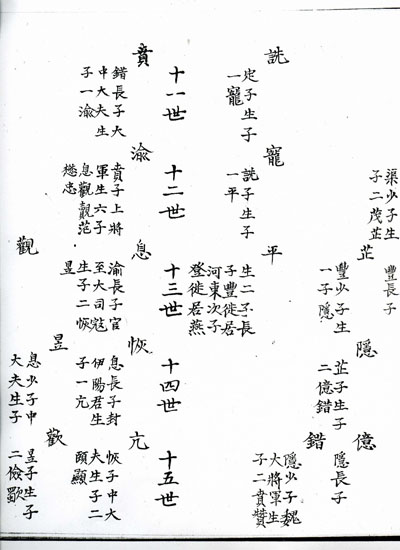 渠少子生
子二茂芷
豐長子
芷
豐少子生
一子隱
隱
芷子生子
二億錯
億
隱長子
錯
隱少子魏
大將軍生
子二賁贊
詵
定子生子
一寵
寵
詵子生子
一平
平
生二子長
子豐徙居
河東次子
登徙居燕
十一世
十二世
十三世
十四世
十五世
賁
錯長子大
中大夫生
子一渝
渝
賁子上將
軍生六子
息觀覿范
懋忠
息
渝長子官
至大司寇
生子二恢
昱
恢
息長子封
伊陽君生
子一亢
亢
恢子中大
夫生子二
頤顯
觀
昱
息少子中
大夫生子
歡
昱子生子
二儉